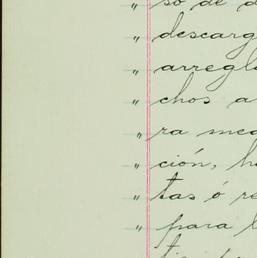 " so de d
" descarg
" arregla
" chos a
" ra med
" ción, ha
" tas ó re
" para l